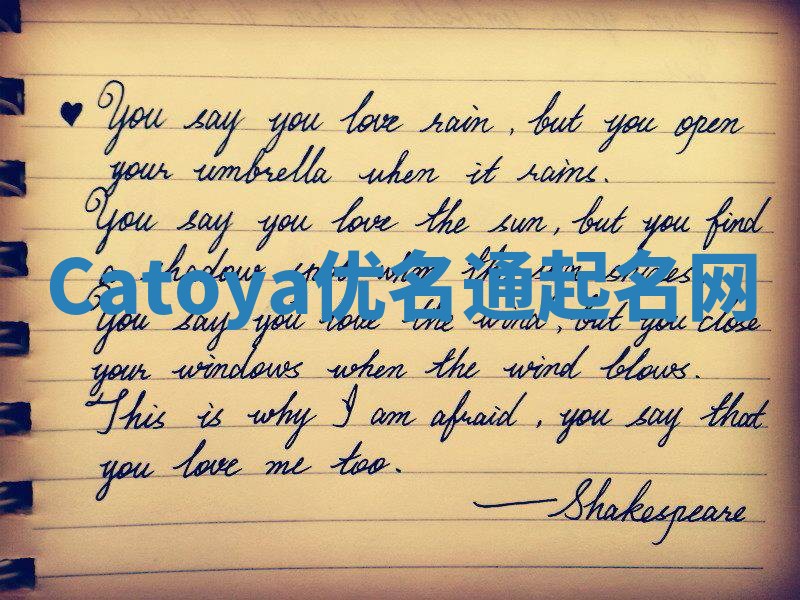 You say you love rain, but you open
your umbrella when it rains.
You say you love the sun, but you find
a shadow spot when the sun shines.
Catoya优名通起名网
You say you love the wind, but you close
your windows when the wind blows.
This is why I am afraid, you say that
you love me too.
—Shakespeare